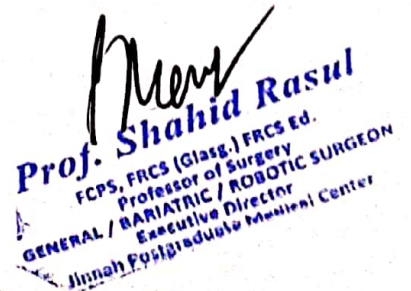 Prof. Shahid Rasul
FCPS, FRCS (Glasg.) FRCS Ed.
Professor of Surgery
GENERAL / BARIATRIC / ROBOTIC SURGEON
Executive Director
Jinnah Postgraduate Medical Center